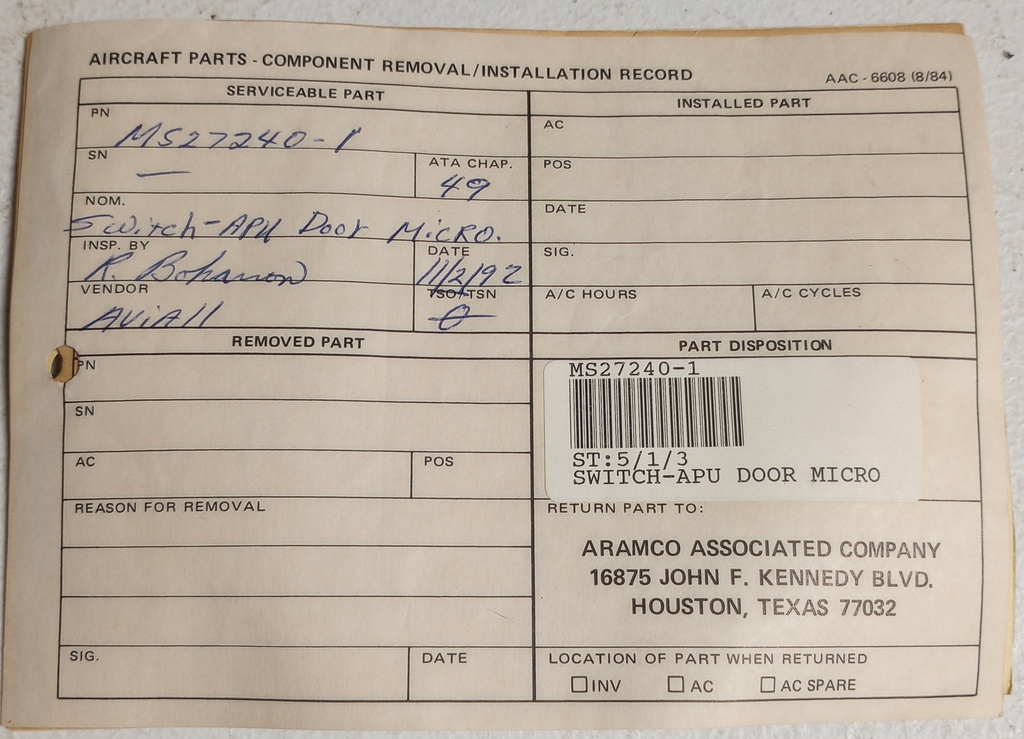 AIRCRAFT PARTS - COMPONENT REMOVAL/INSTALLATION RECORD
AAC - 6608 (8/84)
SERVICEABLE PART
PN
MS27240-1
SN
—
ATA CHAP.
49
NOM.
Switch-APU Door Micro.
INSP. BY
R. Bohannon
DATE
11/2/92
VENDOR
AviAll
TSO/TSN
0
INSTALLED PART
AC
POS
DATE
SIG.
A/C HOURS
A/C CYCLES
REMOVED PART
PN
SN
AC
POS
REASON FOR REMOVAL
SIG.
DATE
PART DISPOSITION
MS27240-1
ST:5/1/3
SWITCH-APU DOOR MICRO
RETURN PART TO:
ARAMCO ASSOCIATED COMPANY
16875 JOHN F. KENNEDY BLVD.
HOUSTON, TEXAS 77032
LOCATION OF PART WHEN RETURNED
☐ INV ☐ AC ☐ AC SPARE